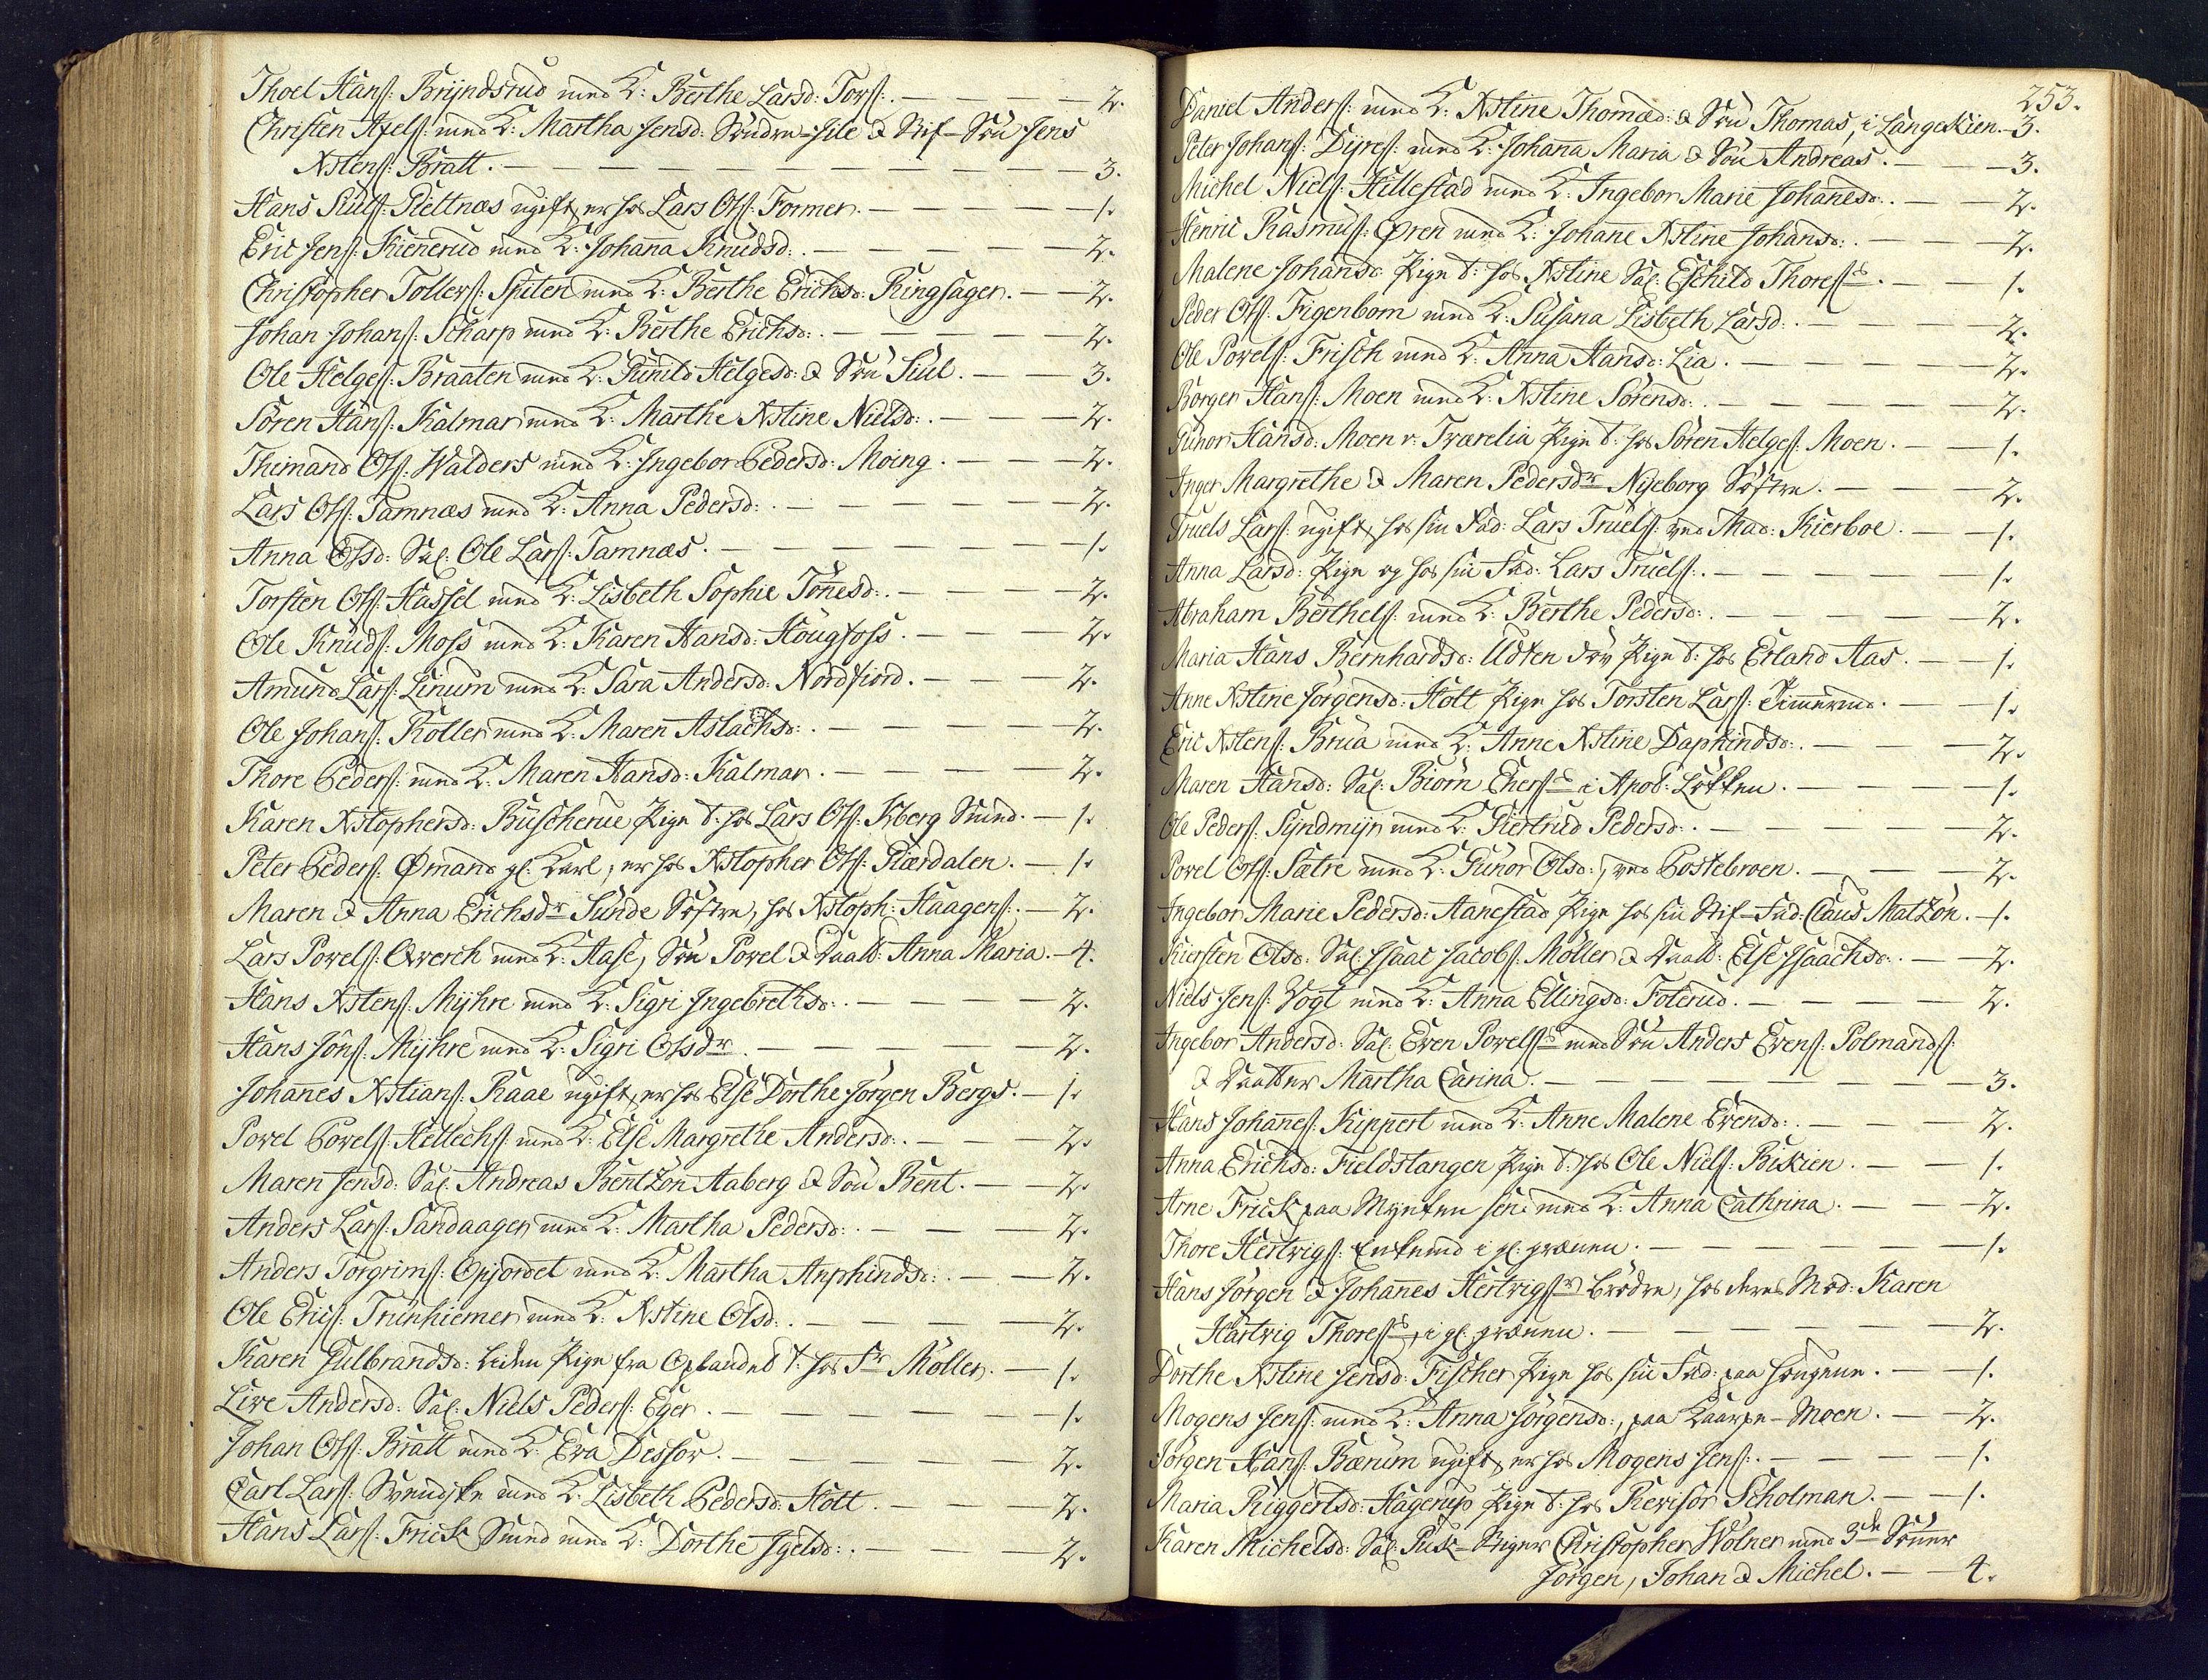 Thoel Hans: Bryndsrud med K: Berthe Larsd: Tors:. — — — — 2.
Christen Axels: med K: Martha Jensd: Søndre-Jile & Stif-Søn Jens
Xstens: Bratt. — — — — — — — — — — 3.
Hans Siuls: Riettnæs ugift, er hos Lars Ols: Former. — — — — 1.
Eric Jens: Kiennerud med K: Johanna Knudsd:. — — — — 2.
Christopher Tollers: Spiten med K: Berthe Erichsd: Ringsager. — — 2.
Johan Johans: Scharp med K: Berthe Erichsd:. — — — — 2.
Ole Helges: Braaten med K: Gunild Helgesd: & Søn Siul. — — 3.
Søren Hans: Kalmar med K: Marthe Xstine Nielsd:. — — — 2.
Themand Ols: Walders med K: Ingebor Pedersd: Moing. — — — 2.
Lars Ols: Tamnæs med K: Anna Pedersd:. — — — — — 2.
Anna Olsd: Sal: Ole Lars: Tamnæs. — — — — — — 1.
Torsten Ols: Hassel med K: Lisbeth Sophie Tønesd:. — — — 2.
Ole Knuds: Moss med K: Karen Hansd: Hougfoss. — — — — 2.
Amund Lars: Linum med K: Sara Andersd: Nordfiord. — — — 2.
Ole Johans: Roller med K: Maren Aslachsd:. — — — — 2.
Thore Peders: med K: Maren Hansd: Kalmar. — — — — 2.
Karen Xstophersd: Buscherue Pige t: hos Lars Ols: Kberg Smed. — 1.
Peter Peders: Ømand gl: Karl, er hos Xstopher Ols: Giærdalen. — 1.
Maren & Anna Erichsdr Sunde Søstre, hos Xstoph: Haagens:. — 2.
Lars Povels: Qværch med K: Aase, Søn Povel & Daatt: Anna Maria. — 4.
Hans Xstens: Myhre med K: Sigri Ingebrethsd:. — — — — 2.
Hans Jøns: Myhre med K: Sigri Olsdr. — — — — — 2.
Johannes Xstians: Raae ugift, er hos Else Dorthe Jørgen Bergs. — 1.
Povel Povels: Hellechs: med K: Else Margrethe Andersd:. — — 2.
Maren Jensd: Sal: Andreas Bentzon Aaberg & Søn Bent. — — 2.
Anders Lars: Sandaager med K: Martha Pedersd:. — — — 2.
Anders Torgrims: Opjordet med K: Martha Anphindsd:. — — 2.
Ole Erics: Trunhiemer med K: Xstine Olsd:. — — — — 2.
Karen Gulbrandsd: liden Pige fra Oplandet t: hos Sr Møller. — 1.
Live Andersd: Sal: Niels Peders: Eger. — — — — — 1.
Johan Ols: Bratt med K: Eva Dessor. — — — — — 2.
Carl Lars: Svendske med K: Lisbeth Pedersd: Holt. — — — 2.
Hans Lars: Frick Smed med K: Dorthe Igelsd:. — — — 2.
253.
Daniel Anders: med K: Xstine Thomæd: & Søn Thomas, i Langeskien. — 3.
Peter Johans: Dyres: med K: Johanna Maria & Søn Andreas. — — 3.
Michel Niels: Hillestad med K: Ingebor Marie Johannesd:. — — 2.
Henric Rasmus: Øren med K: Johane Xstine Johansd:. — — — 2.
Malene Johansd: Pige t: hos Xstine Sal: Eschild Thoress. — — 1.
Peder Ols: Figenbom med K: Susana Lisbeth Larsd:. — — — 2.
Ole Povels: Frisch med K: Anna Hansd: Lia. — — — — 2.
Børger Hans: Moen med K: Xstine Sørensd:. — — — — 2.
Gunor Hansd: Moen v: Tværelia Pige t: hos Søren Helges: Moen. — 1.
Inger Margrethe & Maren Pedersdr Nyeborg Søstre. — — — 2.
Truels Lars: ugift, hos sin Fad: Lars Truels: ved Mad: Kierboe. — 1.
Anna Larsd: Pige og hos sin Fad: Lars Truels:. — — — — 1.
Abraham Berthels: med K: Berthe Pedersd:. — — — — 2.
Maria Hans Bernhardsd: Udten døv Pige t: hos Erland Aas. — 1.
Anne Xstine Jørgensd: Holt Pige hos Torsten Lars: Timmermd. — 1.
Eric Xstens: Brua med K: Anne Xstine Daphindsd:. — — — 2.
Maren Hansd: Sal: Biørn Eners i Apot: Løkken. — — — 1.
Ole Peders: Syndmyr med K: Giertrud Pedersd:. — — — — 2.
Povel Ols: Sætre med K: Gunor Olsd:, ved Postebroen. — — — 2.
Ingebor Marie Pedersd: Aanestad Pige hos sin Stif-Fad: Claus Matzøn. — 1.
Kiersten Olsd: Sal: Isaac Jacobs: Møller & Daatt: Else Isaachsd:. — 2.
Niels Jens: Vogt med K: Anna Ellingsd: Foterud. — — — — 2.
Ingebor Andersd: Sal: Even Povels med Søn Anders Evens: Polmands:
& Daatter Martha Carina. — — — — — — — — 3.
Hans Johanes: Kippert med K: Anne Malene Evensd:. — — — 2.
Anna Erichsd: Fieldstangen Pige t: hos Ole Niels: Biskien. — — 1.
Arne Frick paa Mynten sen: med K: Anna Cathrina. — — 2.
Thore Hertvigs: Enkemd i gl: grænen. — — — — — 1.
Hans Jørgen & Johannes Hertvigs Brødre, hos deres Mod: Karen
Hartvig Thores, i gl: grænen. — — — — — — 2.
Dorthe Xstine Jensd: Fischer Pige hos sin Fad: paa Hougene. — — 1.
Mogens Jens: med K: Anna Jørgensd:, paa Kaarpe-Moen. — — 2.
Jørgen Hans: Bærum ugift, er hos Mogens Jens:. — — — — 1.
Maria Riggertsd: Hagerup Pige t: hos Revisor Scholman. — — 1.
Karen Michelsd: Sal: Puk-Stiger Christopher Wølner med 3de Sønner
Jørgen, Johan & Michel. — — 4.